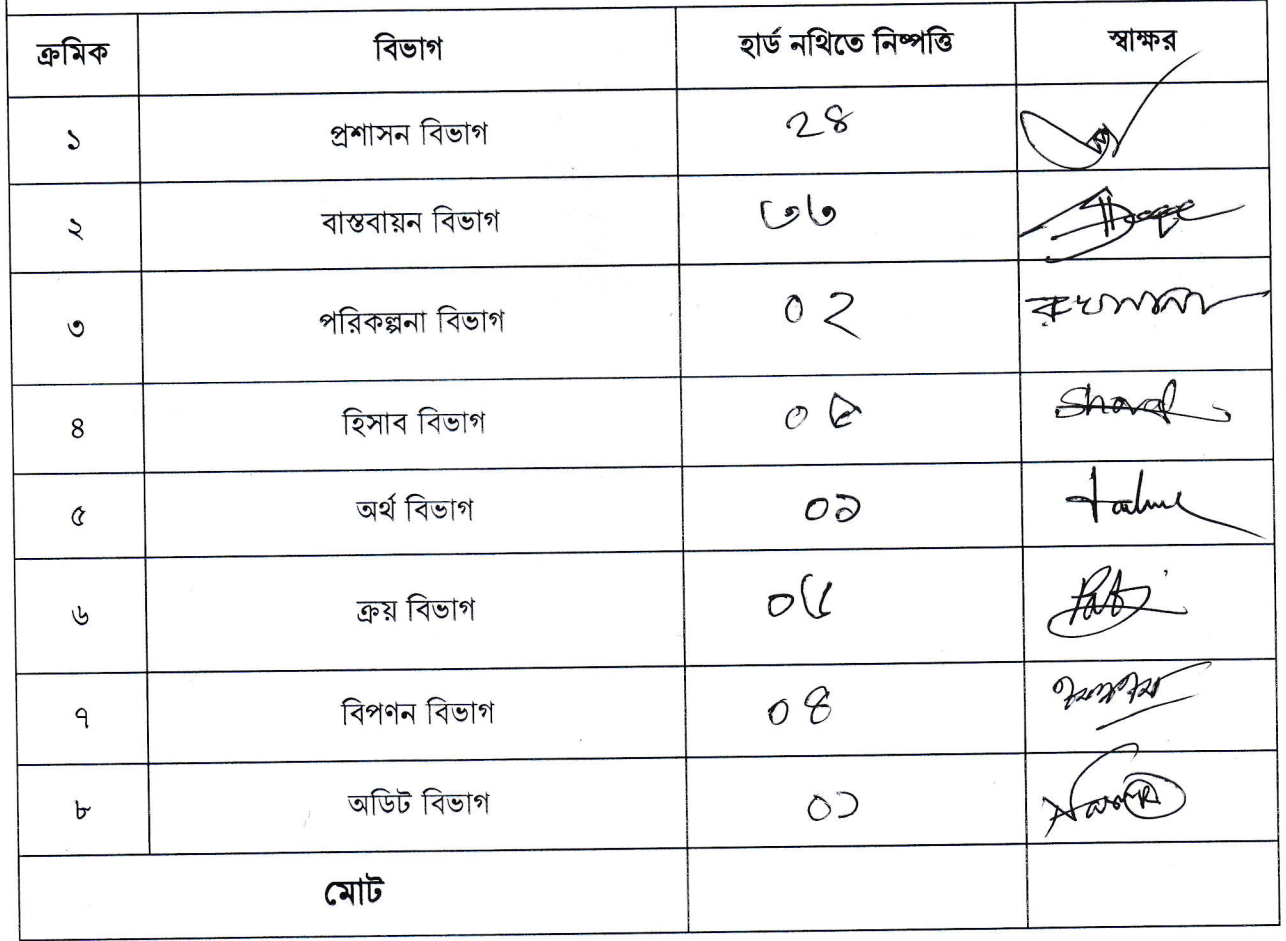 ক্রমিক বিভাগ হার্ড নথিতে নিষ্পত্তি স্বাক্ষর
১ প্রশাসন বিভাগ ২৪
২ বাস্তবায়ন বিভাগ ৩৬
৩ পরিকল্পনা বিভাগ ০২
৪ হিসাব বিভাগ
৫ অর্থ বিভাগ ০১
৬ ক্রয় বিভাগ ০৫
৭ বিপণন বিভাগ ০৪
৮ অডিট বিভাগ ০১
মোট